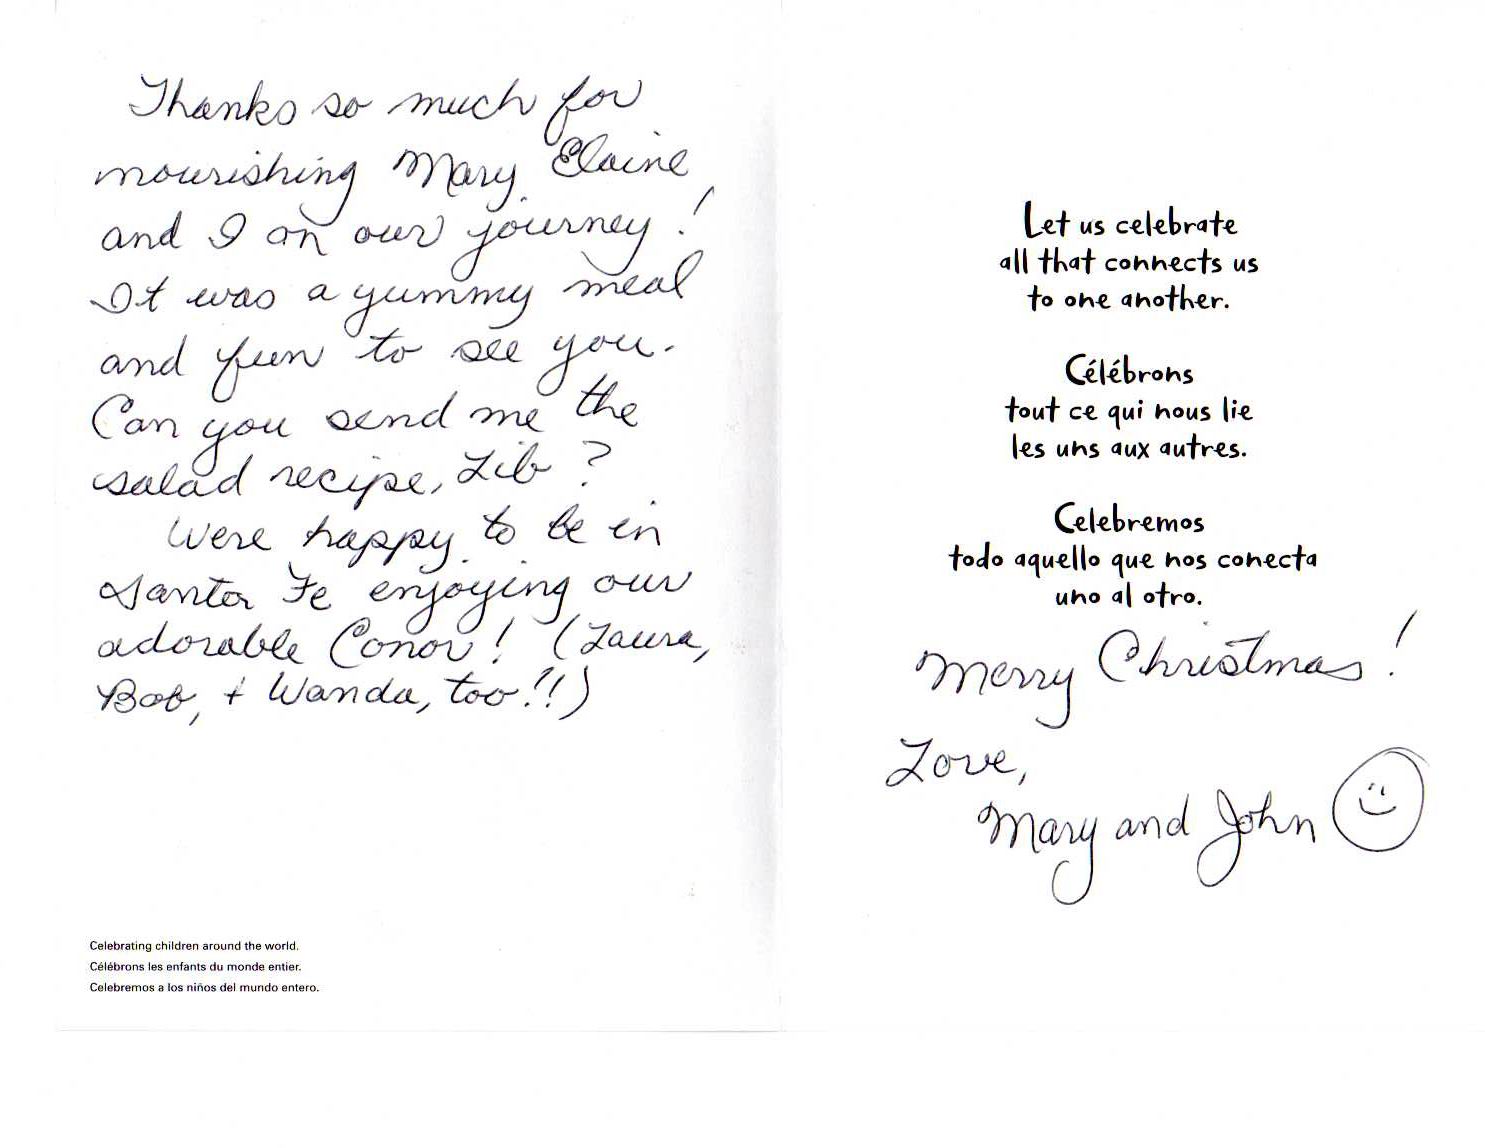 Thanks so much for
nourishing Mary Elaine
and I on our journey!
It was a yummy meal
and fun to see you.
Can you send me the
salad recipe, Lib?
Were happy to be in
Santa Fe enjoying our
adorable Conor! (Laura,
Bob, + Wanda, too!!)
Celebrating children around the world.
Célébrons les enfants du monde entier.
Celebremos a los niños del mundo entero.
Let us celebrate
all that connects us
to one another.
Célébrons
tout ce qui nous lie
les uns aux autres.
Celebremos
todo aquello que nos conecta
uno al otro.
Merry Christmas!
Love,
Mary and John